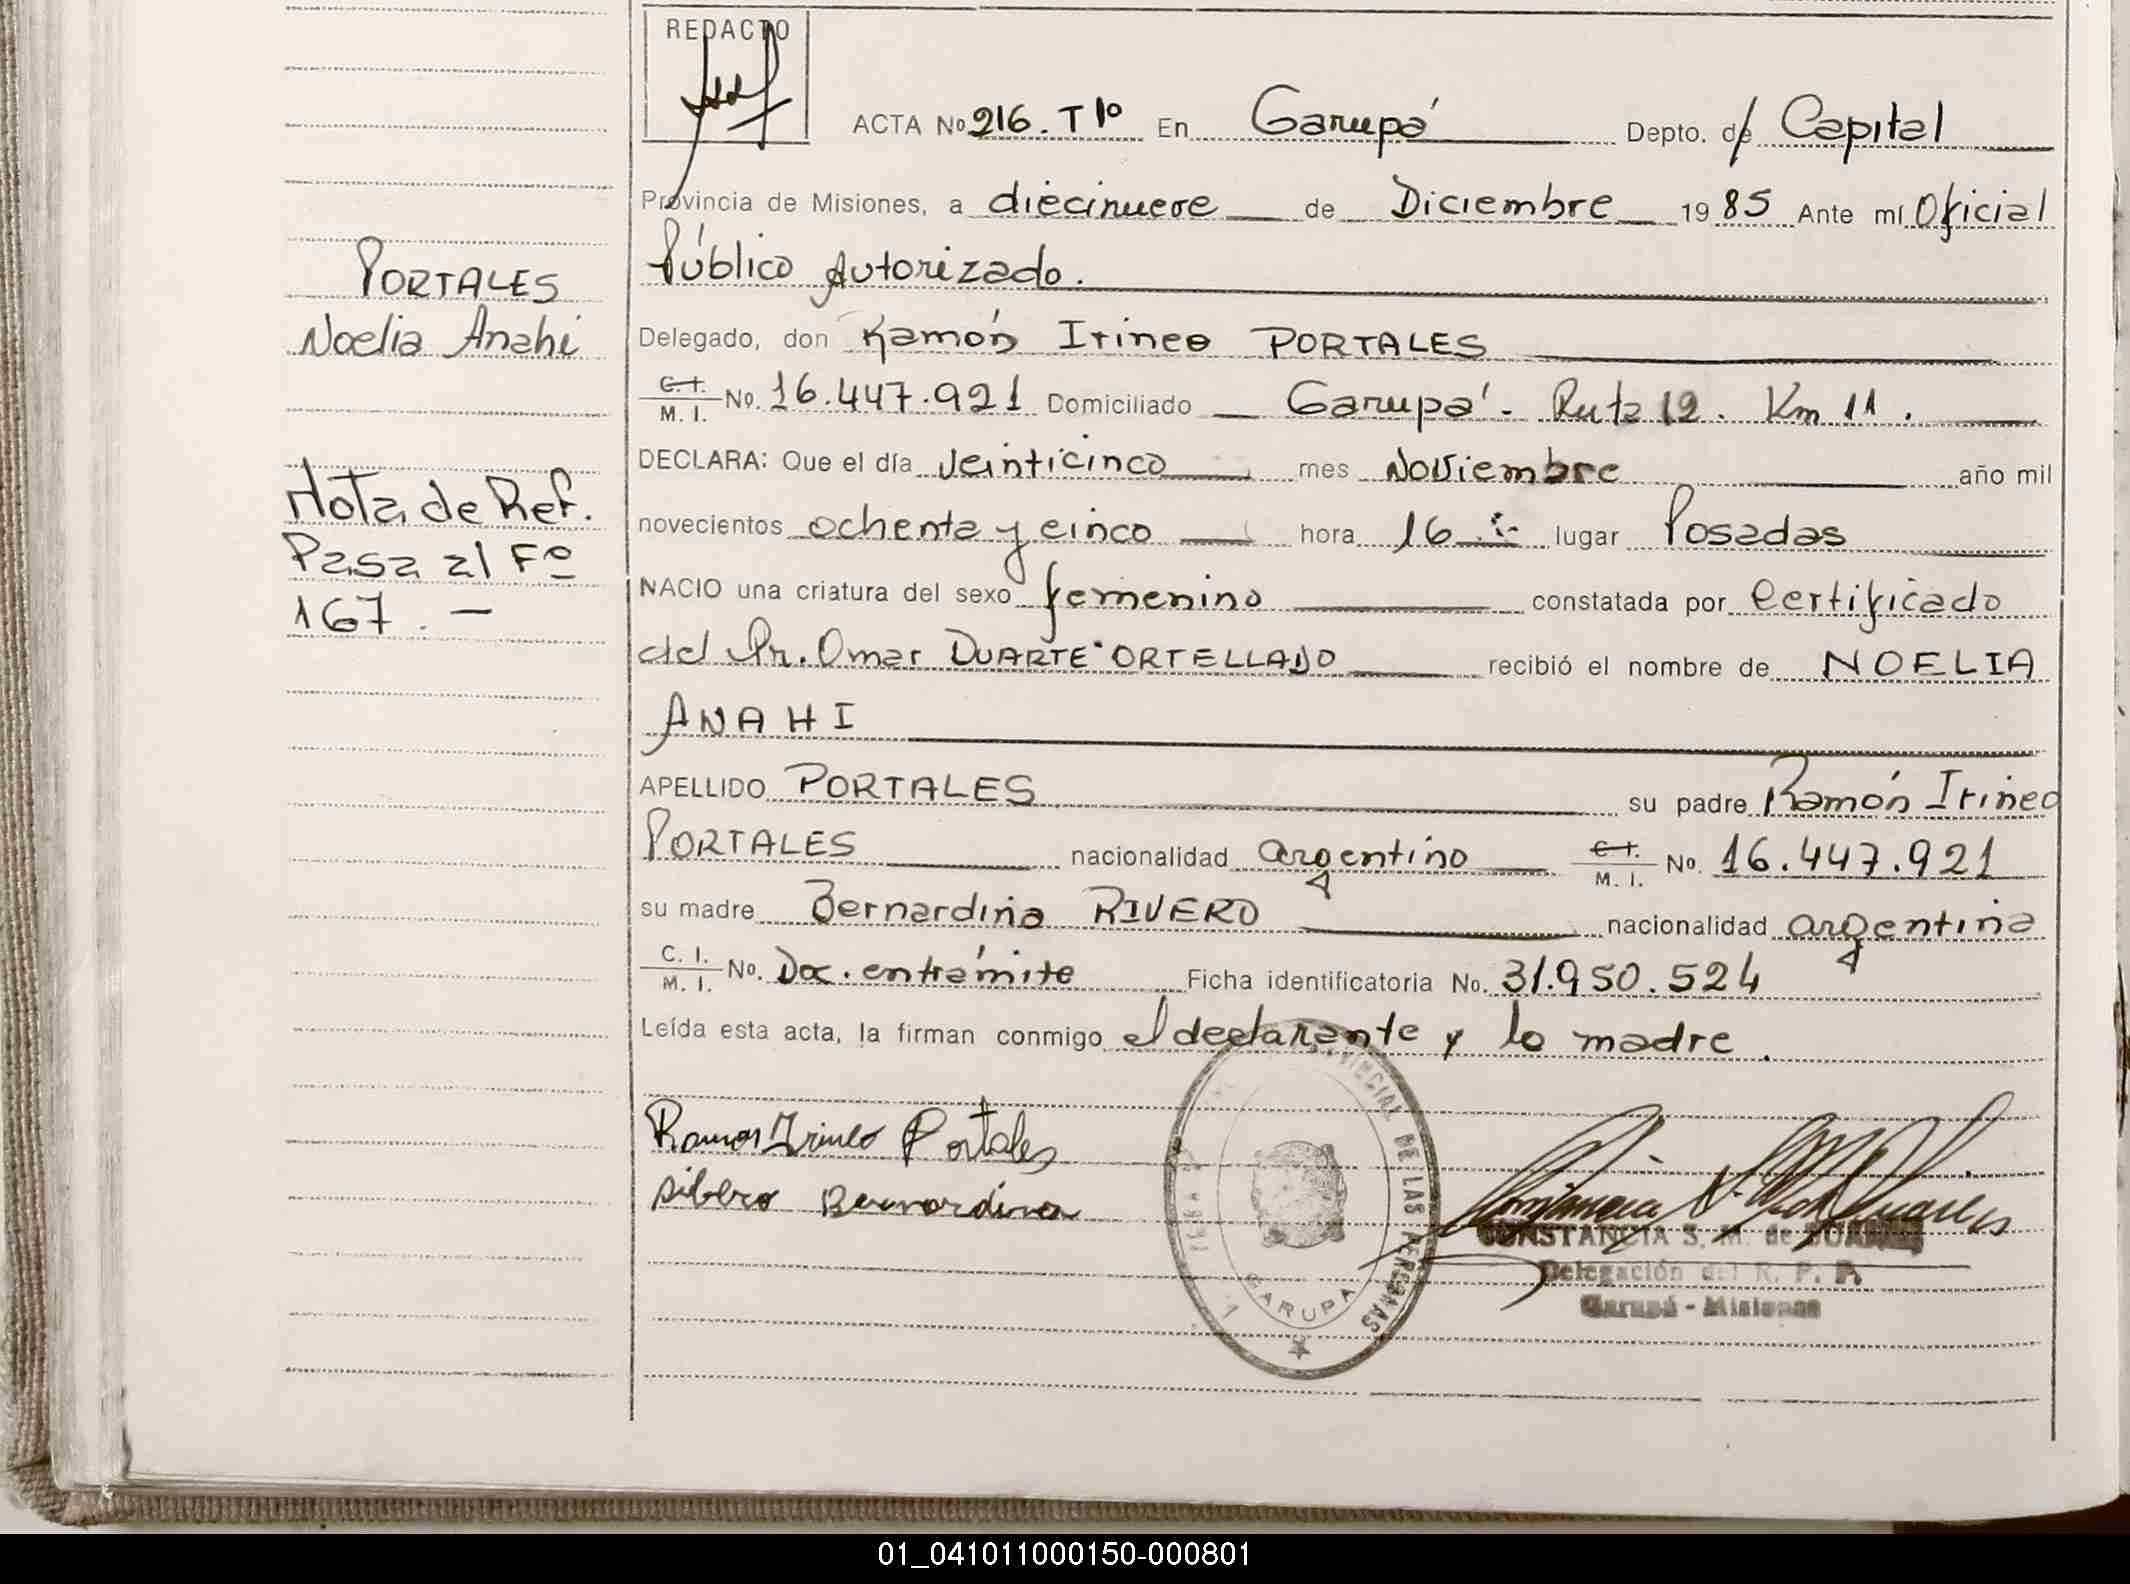 REDACTO
ACTA No 216. T 1º En Garupá Depto. de Capital
Provincia de Misiones, a diecinueve de Diciembre 1985 Ante mí Oficial
Público Autorizado.
Delegado, don Ramón Irineo PORTALES
C. I. M. I. No. 16.447.921 Domiciliado Garupá - Ruta 12. Km 11.
DECLARA: Que el día veinticinco mes Noviembre año mil
novecientos ochenta y cinco hora 16 lugar Posadas
NACIO una criatura del sexo femenino constatada por Certificado
del Dr. Omar DUARTE ORTELLADO recibió el nombre de NOELIA
ANAHI
APELLIDO PORTALES su padre Ramón Irineo
PORTALES nacionalidad argentino C. I. M. I. No. 16.447.921
su madre Bernardina RIVERO nacionalidad argentina
C. I. M. I. No. Doc. entrámite Ficha identificatoria No. 31.950.524
Leída esta acta, la firman conmigo el declarante y la madre.
PORTALES
Noelia Anahi
Nota de Ref.
Pasa al Fº
167. -
Ramon Irineo Portales
Ribero Bernardina
DE LAS PERSONAS
GARUPA
CONSTANCIA S. M. de SUAREZ
Delegación del R. P. P.
Garupá - Misiones
01_041011000150-000801